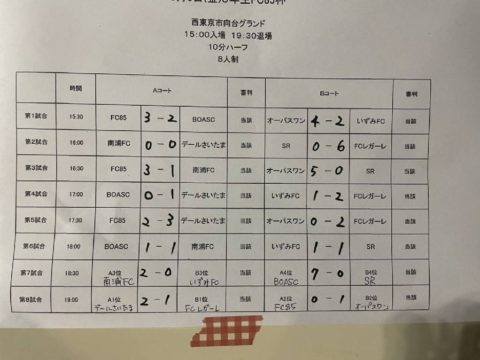 西東京市向台グランド
15:00入場 19:30退場
10分ハーフ
8人制
時間 Aコート 審判 Bコート 審判
第1試合 15:30 FC85 3-2 BOASC 当該 オーパスワン 4-2 いずみFC 当該
第2試合 16:00 南浦FC 0-0 デールさいたま 当該 SR 0-6 FCレガーレ 当該
第3試合 16:30 FC85 3-1 南浦FC 当該 オーパスワン 5-0 SR 当該
第4試合 17:00 BOASC 0-1 デールさいたま 当該 いずみFC 1-2 FCレガーレ 当該
第5試合 17:30 FC85 2-3 デールさいたま 当該 オーパスワン 0-2 FCレガーレ 当該
第6試合 18:00 BOASC 1-1 南浦FC 当該 いずみFC 1-1 SR 当該
第7試合 18:30 A3位 南浦FC 2-0 B3位 いずみFC 当該 A4位 BOASC 7-0 B4位 SR 当該
第8試合 19:00 A1位 デールさいたま 2-1 B1位 FCレガーレ 当該 A2位 FC85 0-1 B2位 オーパスワン 当該